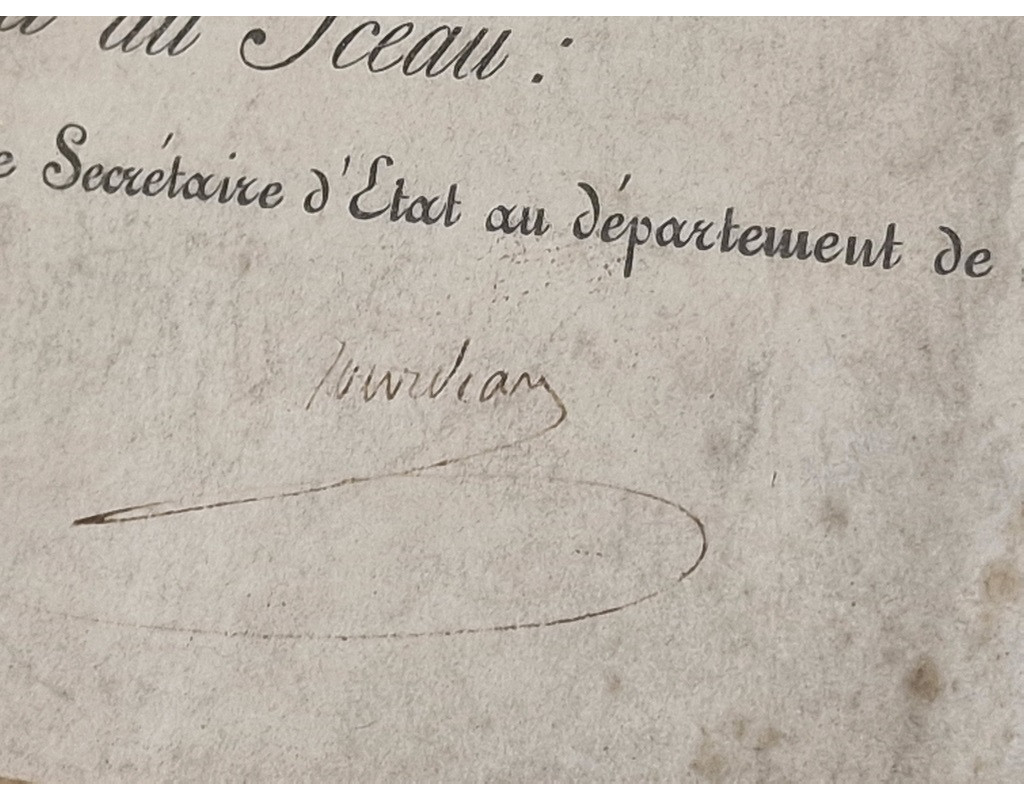 au Sceau :
Secrétaire d'Etat au département de
Jourdean